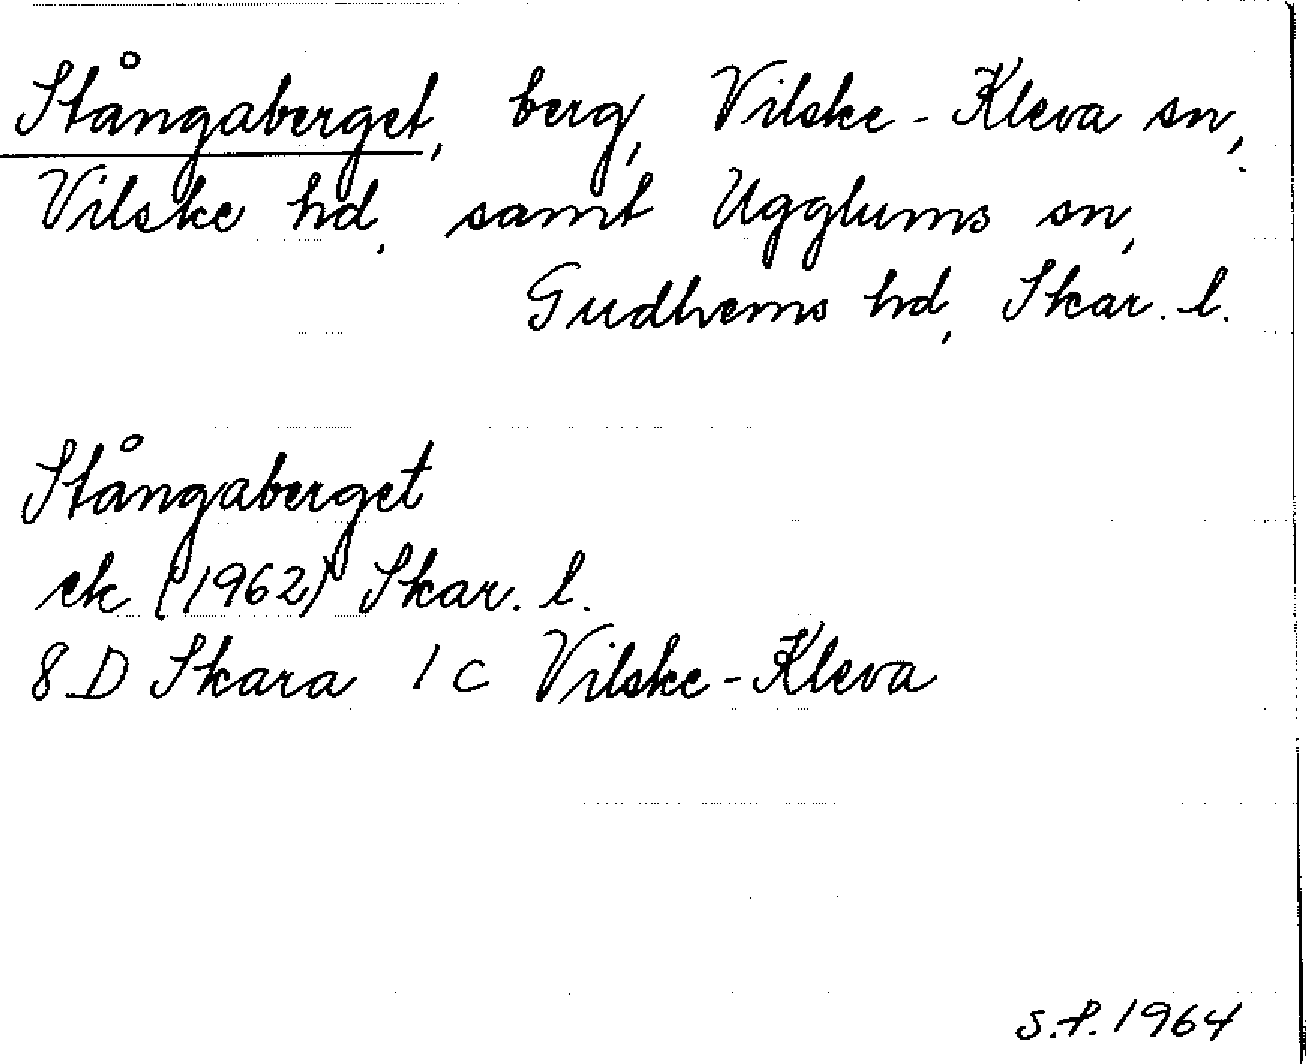 Stångaberget, berg, Vilske-Kleva sn,
Vilske hd, samt Ugglums sn,
Gudhems hd, Skar. l.
Stångaberget
ek (1962) Skar. l.
8 D Skara 1 c Vilske-Kleva
S.P. 1964